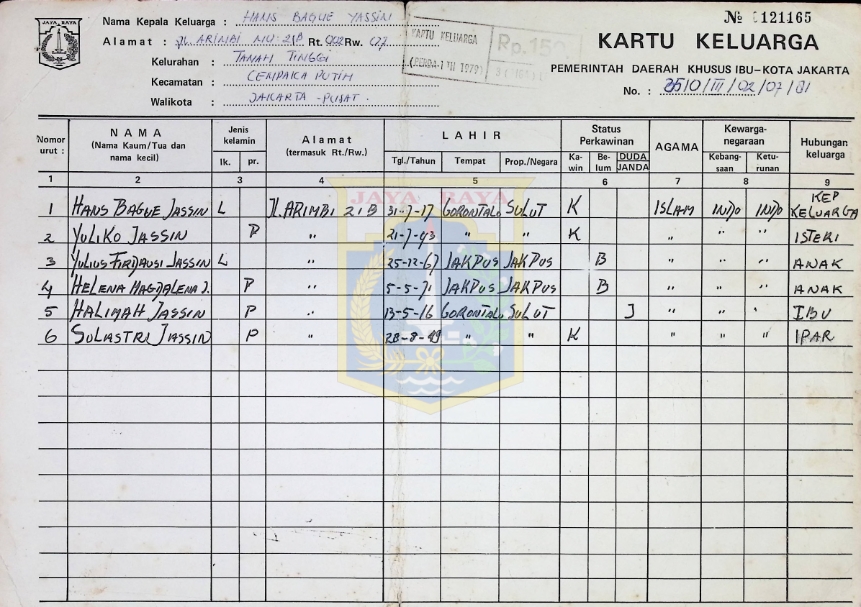 JAYA RAYA
Nama Kepala Keluarga : HANS BAGUE YASSIN
Alamat : JL. ARIMBI NO. 21B Rt. 002 Rw. 07
Kelurahan : TANAH TINGGI
Kecamatan : CEMPAKA PUTIH
Walikota : JAKARTA - PUSAT.
KARTU KELUARGA
Rp.150
№ 121165
KARTU KELUARGA
PEMERINTAH DAERAH KHUSUS IBU-KOTA JAKARTA
No. : 2510/III/02/07/81
Nomor urut : N A M A (Nama Kaum/Tua dan nama kecil) Jenis kelamin Alamat (termasuk Rt./Rw.) L A H I R Status Perkawinan AGAMA Kewarga-negaraan Hubungan keluarga
lk. pr. Tgl./Tahun Tempat Prop./Negara Ka-win Be-lum DUDA JANDA Kebang-saan Ketu-runan
1 2 3 4 5 6 7 8 9
JAYA RAYA
1 HANS BAGUE JASSIN L Jl. ARIMBI 21B 31-7-17 GORONTALO SULUT K ISLAM INDO INDO KEP KELUARGA
2 YULIKO JASSIN P " 21-7-43 " " K " " " ISTERI
3 YULIUS FIRDAUSI JASSIN L " 25-12-67 JAKPUS JAKPUS B " " " ANAK
4 HELENA MAGDALENA J. P " 5-5-71 JAKPUS JAKPUS B " " " ANAK
5 HALIMAH JASSIN P " 13-5-16 GORONTALO SULUT J " " " IBU
6 SULASTRI JASSIN P " 28-8-49 " " K " " " IPAR